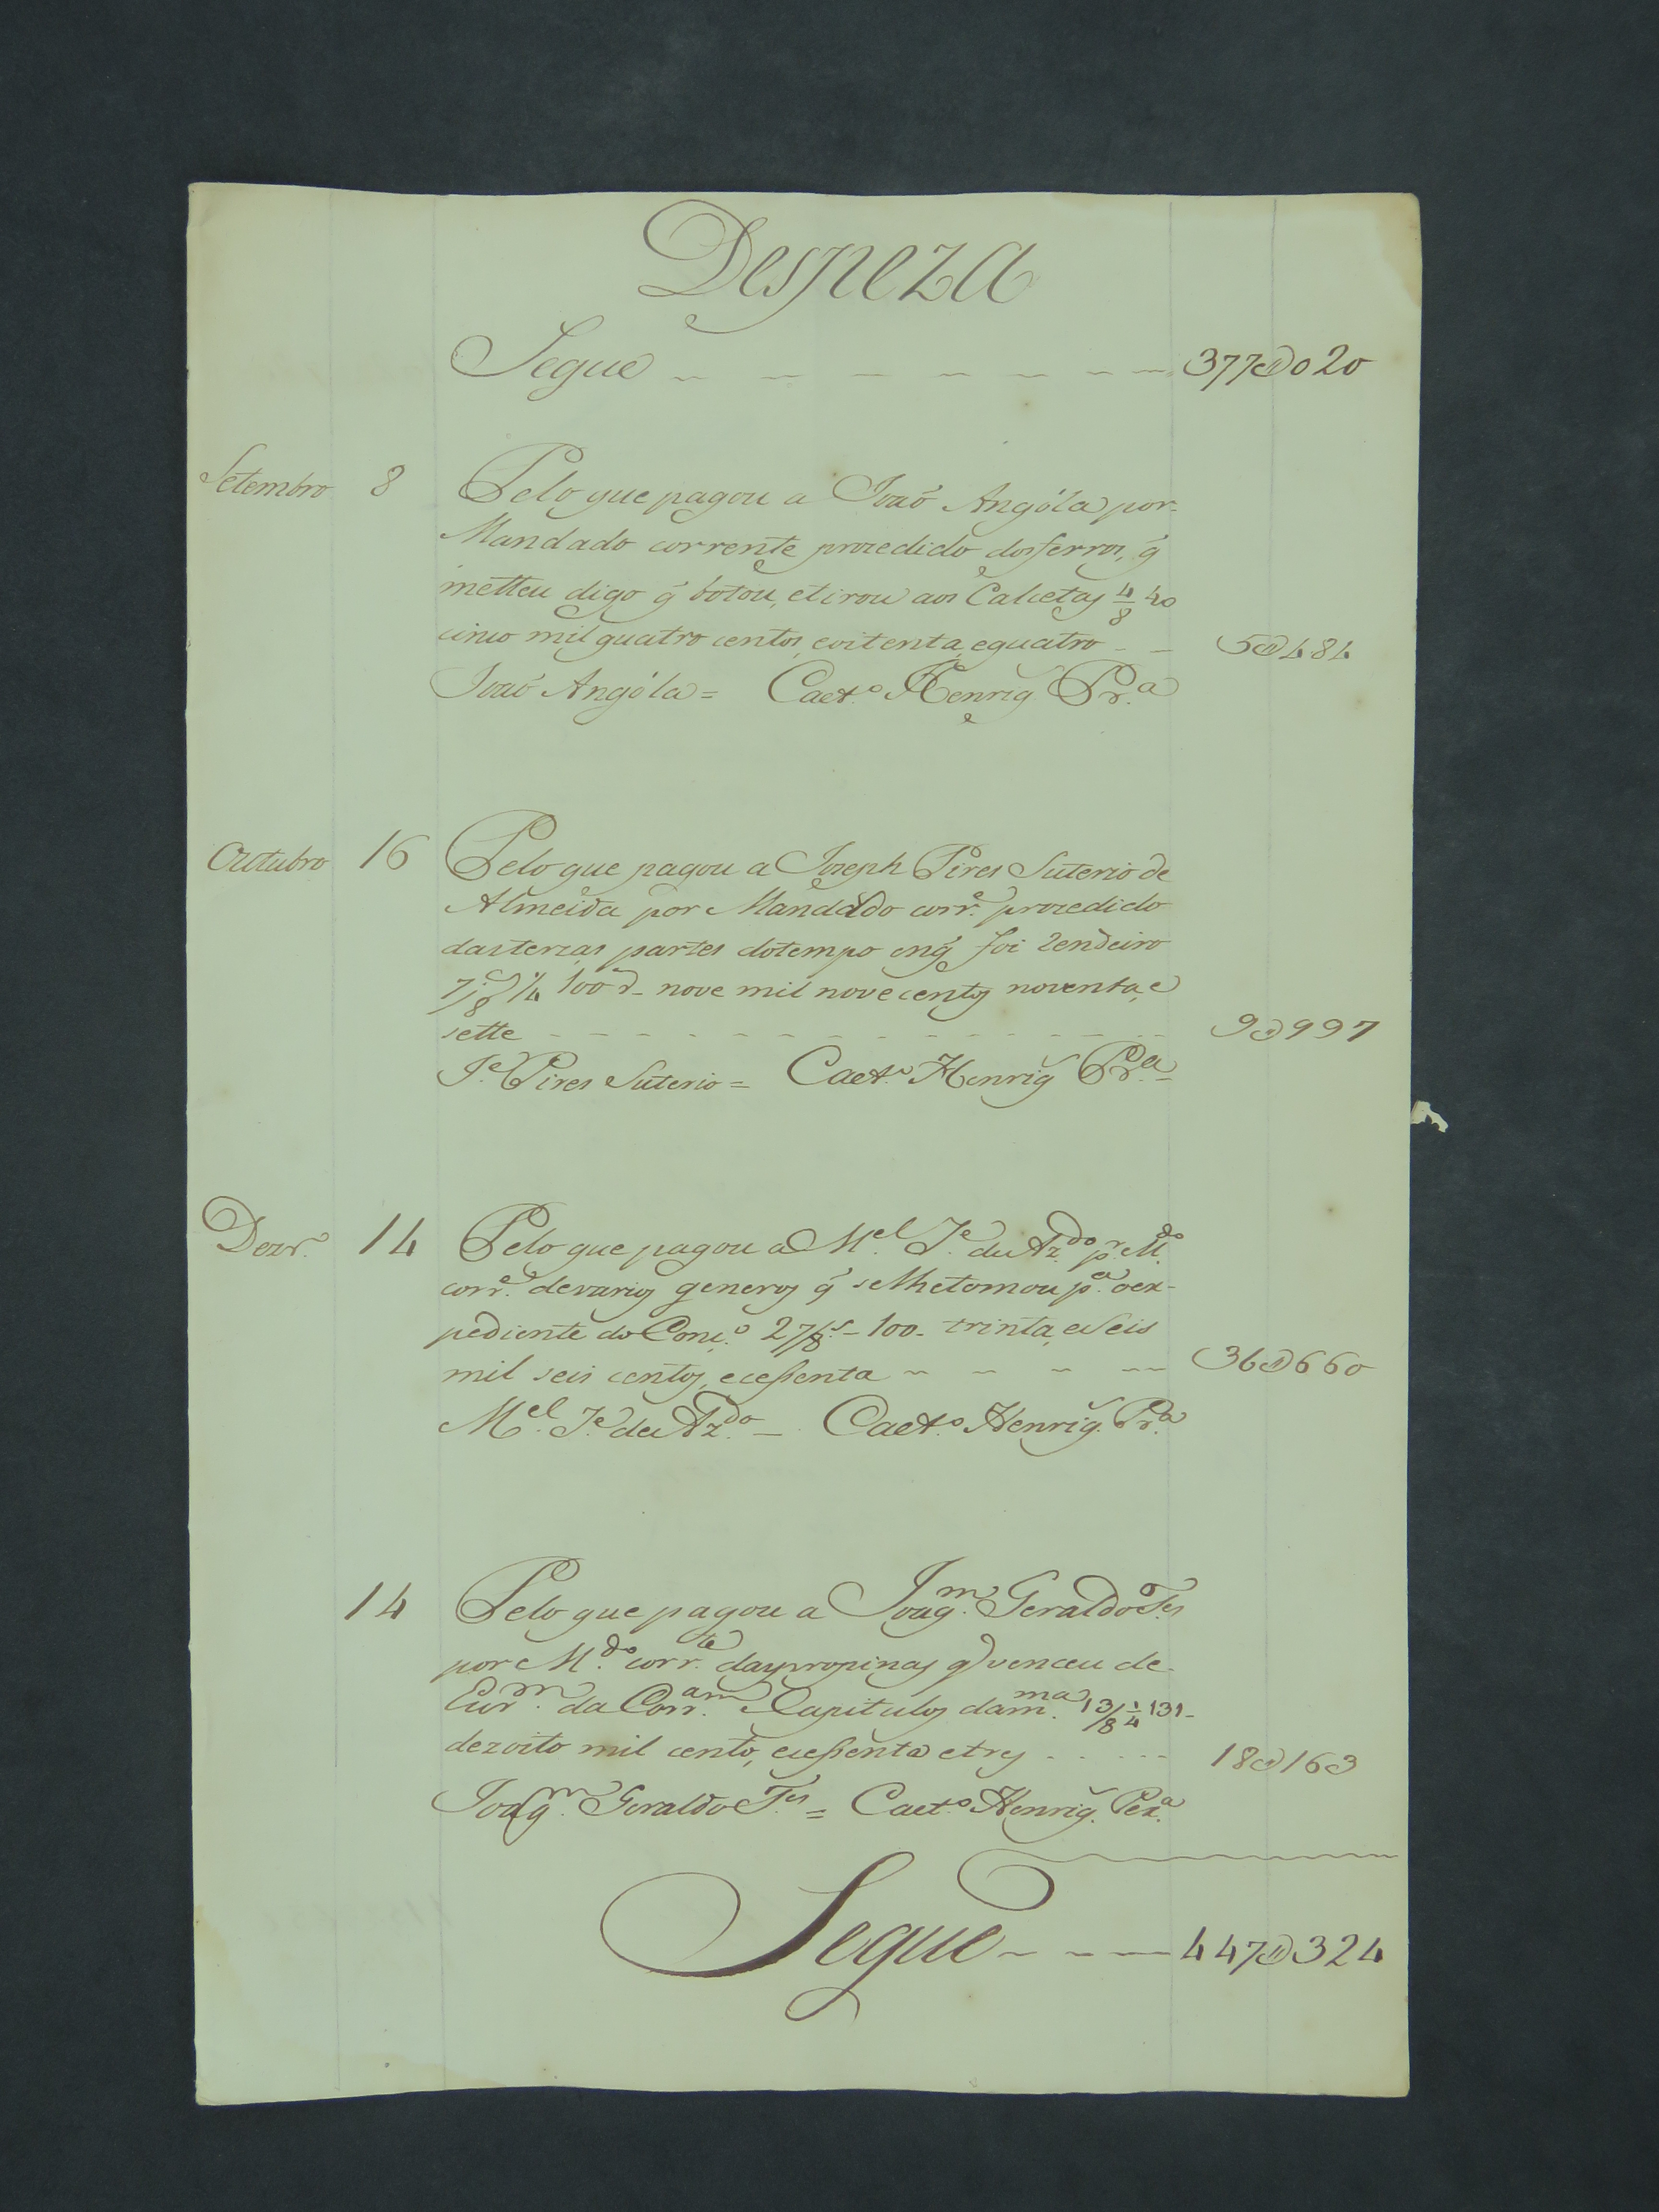 Despeza
Segue 377$020
Setembro 8 Pelo que pagou a Joaõ Angóla por
Mandado corrente procedido dos ferros, q̃
metteu digo q̃ botou, e tirou aos Calcetas 4/8 40
cinco mil quatro centos, eoitenta, equatro 5$484
Joaõ Angóla = Caet.º Henriq̃ Pr.ª
Outubro 16 Pelo que pagou a Joseph Pires Suterio de
Almeida por Mandado corr.e procedido
das terças partes do tempo enq̃ foi Rendeiro
7/8 1/4 100 r.- nove mil nove centos noventa, e
sette 9$997
J.e Pires Suterio = Caet.º Henriq̃ Pr.ª
Dezr.º 14 Pelo que pagou a M.el J.e de Az.do p.r M.do
corr.e de varios generos q̃ se lhe tomou p.ª o ex-
pediente do Conc.º 27/8.s - 100 - trinta, e seis
mil seis centos, e cessenta 36$660
M.el J.e de Az.do - Caet.º Henriq̃. Pr.ª
14 Pelo que pagou a Joaq.m Geraldo T.es
por M.do corr.te das propinas q̃ venceu de
Escr.m da Corr.am Capitulos dam.ma 13/8 1/4 131-
dezoito mil cento, e cessenta e tres 18$163
Joaq.m Geraldo T.es = Caet.º Henriq̃. Per.ª
Segue 447$324